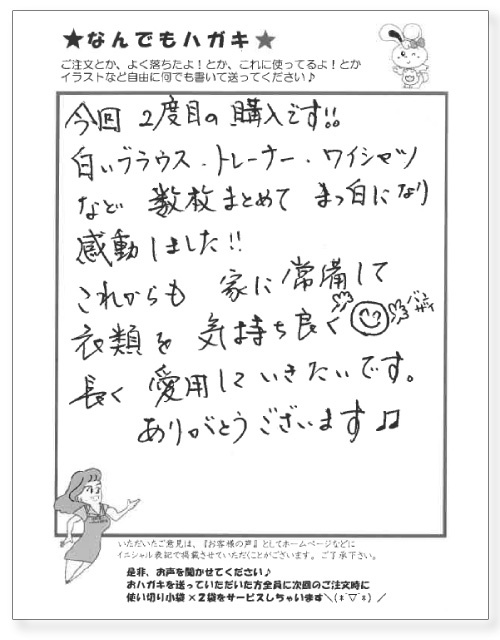 ★なんでもハガキ★
ご注文とか、よく落ちたよ！とか、これに使ってるよ！とか
イラストなど自由に何でも書いて送ってください♪
今回 2度目の購入です!!
白いブラウス・トレーナー・ワイシャツ
など 数枚まとめて まっ白になり
感動しました!!
これからも 家に常備して
衣類を 気持ち良く
長く 愛用していきたいです。
ありがとうございます♫
いただいたご意見は、『お客様の声』としてホームページなどに
イニシャル表記で掲載させていただくことがございます。ご了承下さい。
是非、お声を聞かせてください♪
おハガキを送っていただいた方全員に次回のご注文時に
使い切り小袋×2袋をサービスしちゃいます＼(*´▽`*)／